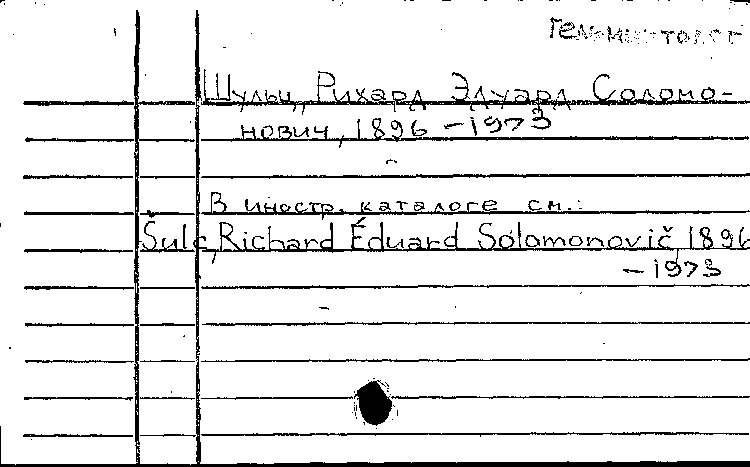 Гельминтолог
Шульц, Рихард Эдуард Соломо-
нович, 1896 - 1973
В иностр. каталоге см.:
Šulc, Richard Éduard Solomonovič 1896
- 1973